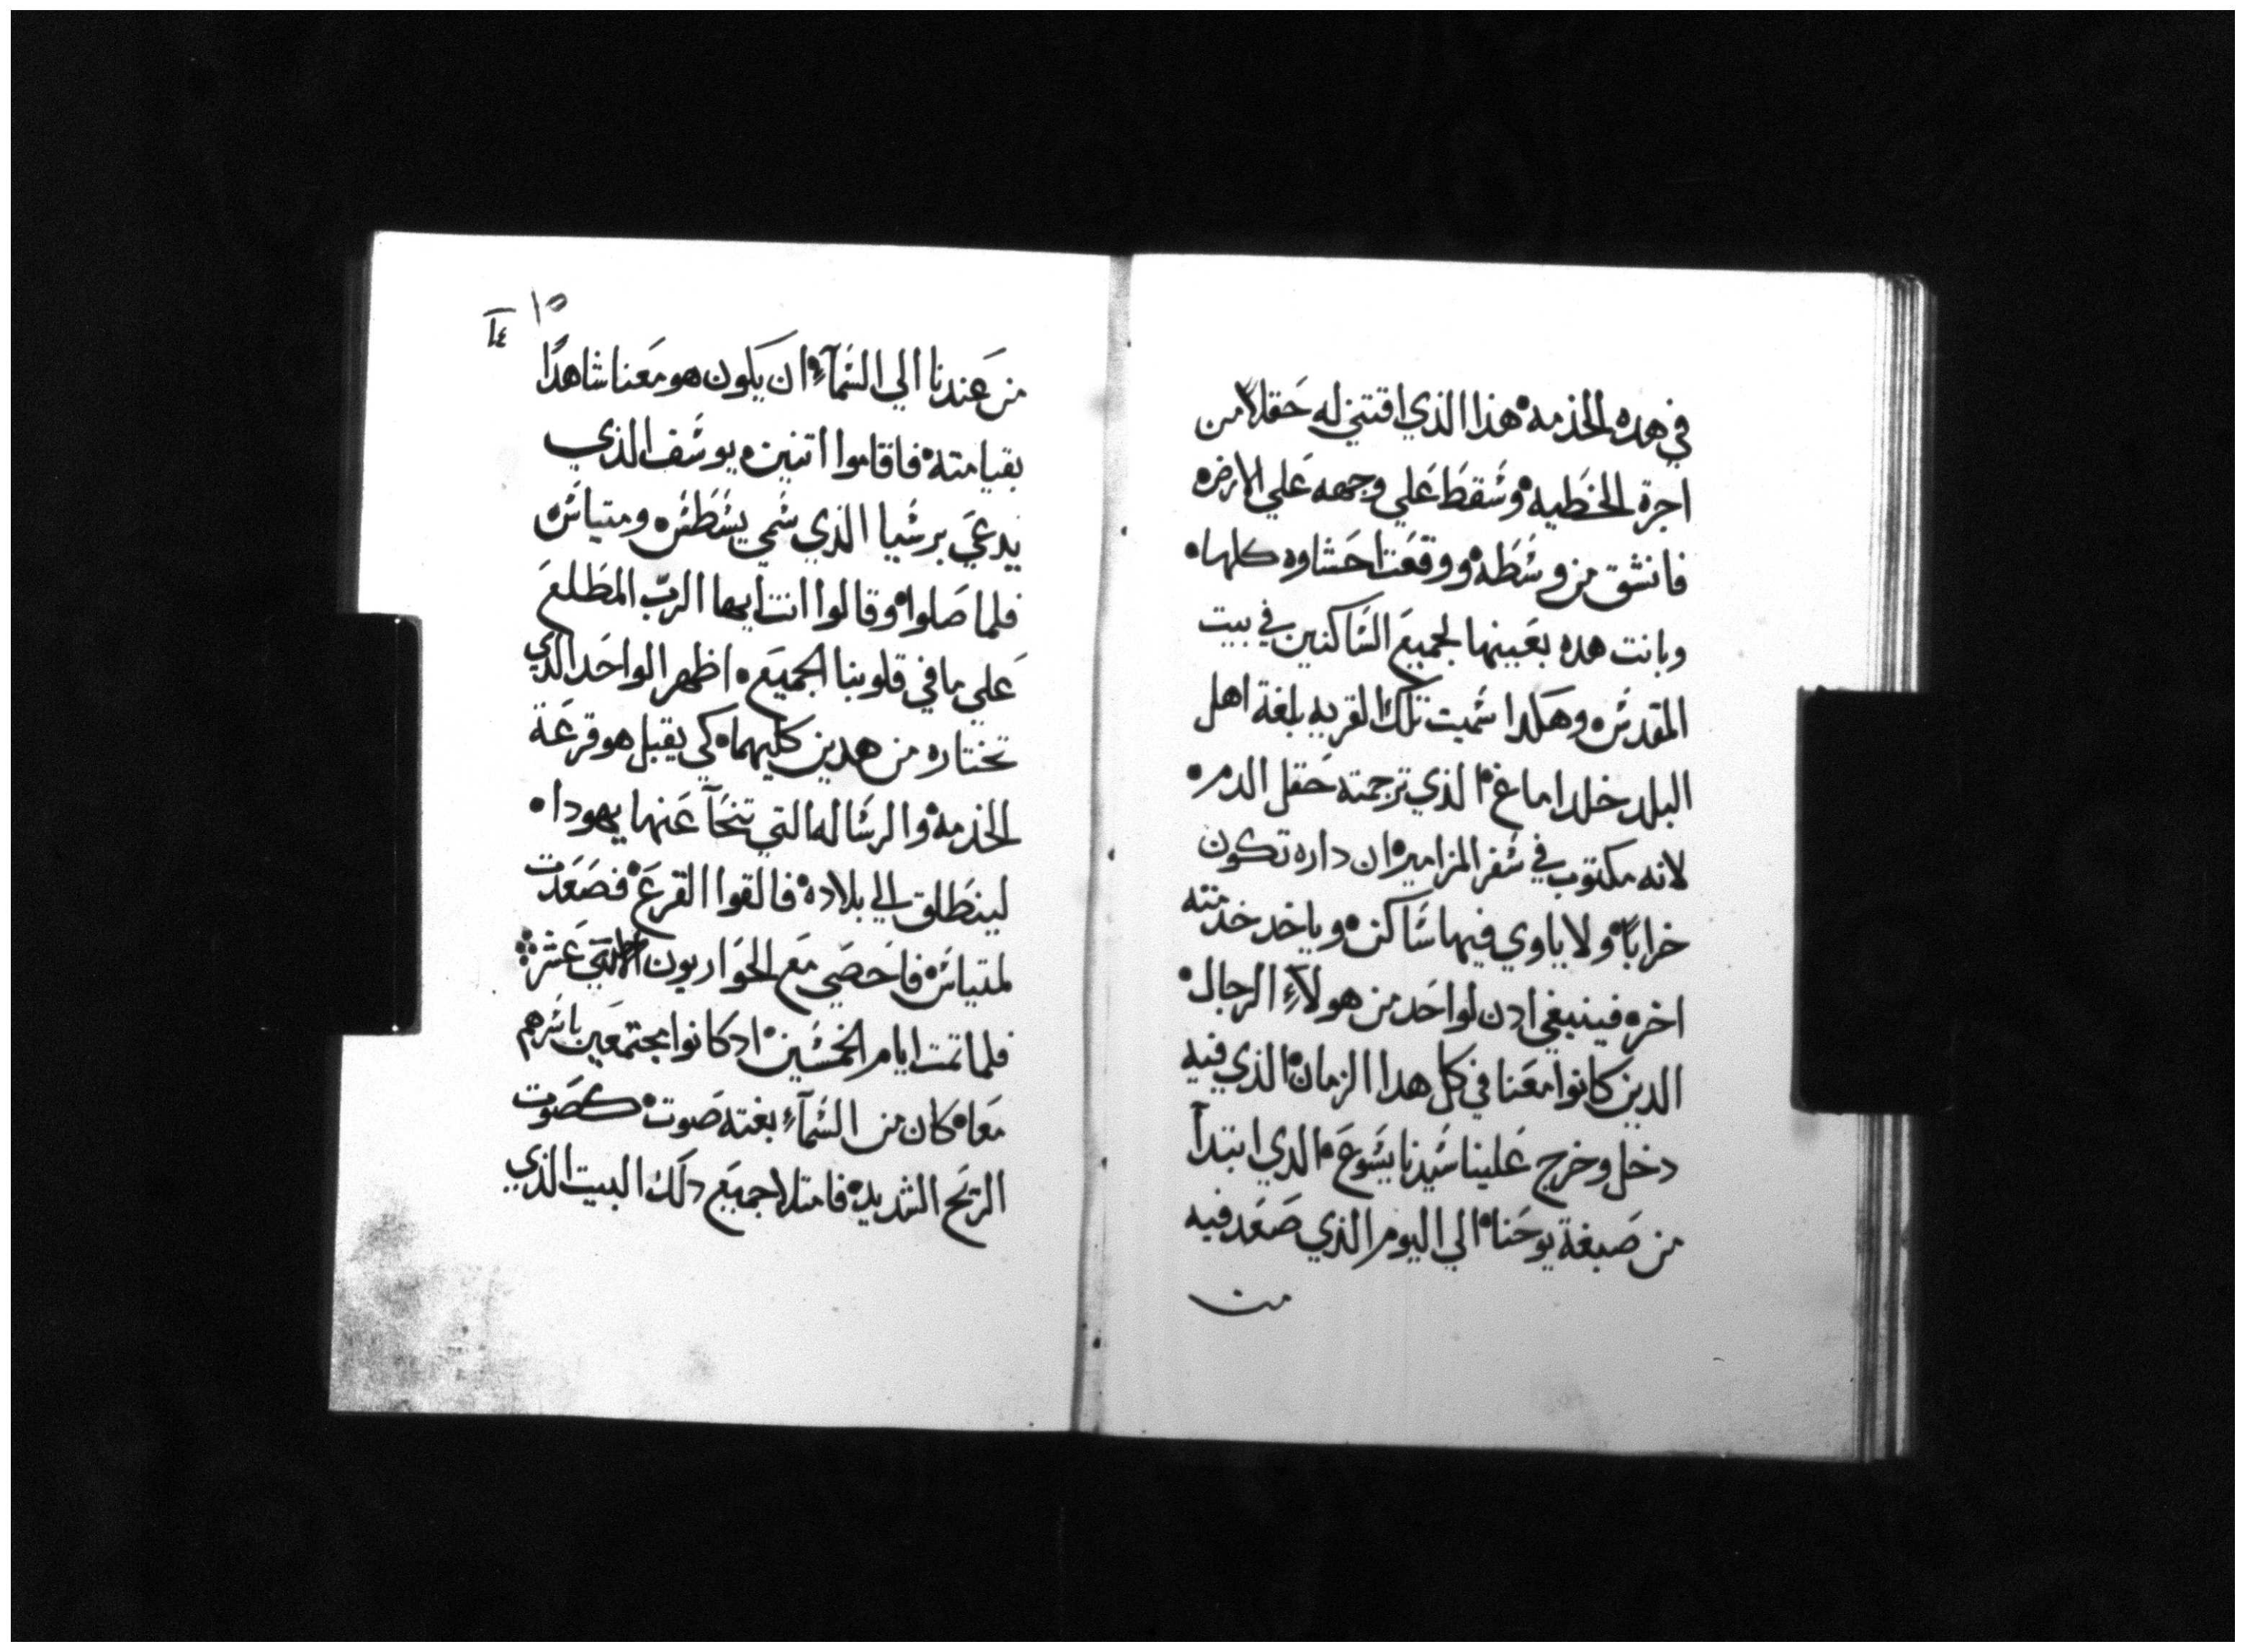 في هده الخدمه هذا الذي اقتني له حقلا من
اجرة الخطيه وسقط علي وجهه علي الارض
فانشق من وسطه ووقعت احشاوه كلها
وبانت هده بعينها لجميع الساكنين في بيت
المقدس وهكدا سميت تلك القريه بلغة اهل
البلد خلدا ماغ الذي ترجمته حقل الدم
لانه مكتوب في سفر المزامير ان داره تكون
خرابا ولا ياوي فيها ساكن وياخد خدمته
اخر فينبغي ادن لواحد من هولاء الرجال
الدين كانوا معنا في كل هدا الزمان الذي فيه
دخل وخرج علينا سيدنا يسوع الدي ابتدا
من صبغة يوحنا الي اليوم الذي صعد فيه
من
١٥
من عندنا الي السماء ان يكون هو معنا شاهدًا
بقيامته فاقاموا اتنين يوسف الذي
يدعي برسبا الذي سمي يسطس ومتياس
فلما صلوا وقالوا انت ايها الرب المطلع
علي ما في قلوبنا الجميع اظهر الواحد الدي
تختاره من هدين كليهما كي يقبل هو قرعة
الخذمه والرساله التي تنحآ عنها يهودا
لينطلق الي بلاده فالقوا القرع فصعدت
لمتياس فاحصي مع الحواريون الاتني عشر
فلما تمت ايام الخمسين اد كانوا مجتمعين باسرهم
معا كان من السماء بغته صوت كصوت
الريح الشديده فامتلا جميع دلك البيت الذي